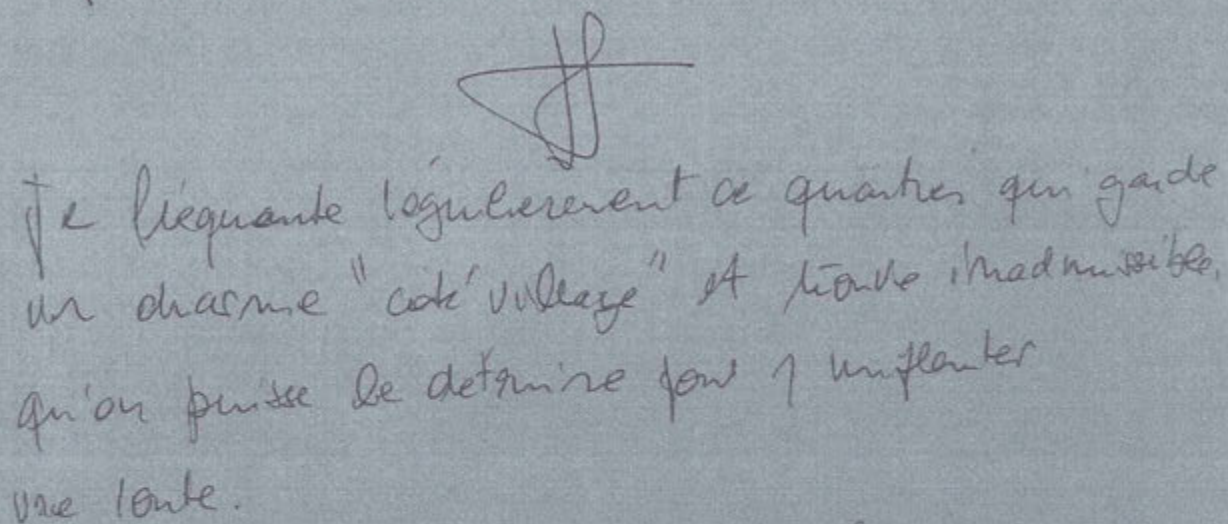 Je fréquente régulierement ce quartier qui garde
un charme "côté village" et trouve inadmissible
qu'on puisse le detruire pour y implanter
une route.